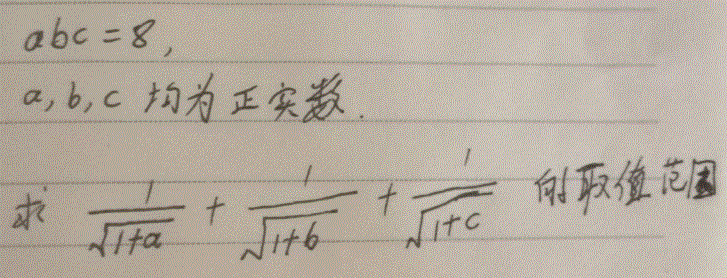 abc = 8,
a, b, c 均为正实数.
求 1/√(1+a) + 1/√(1+b) + 1/√(1+c) 的取值范围